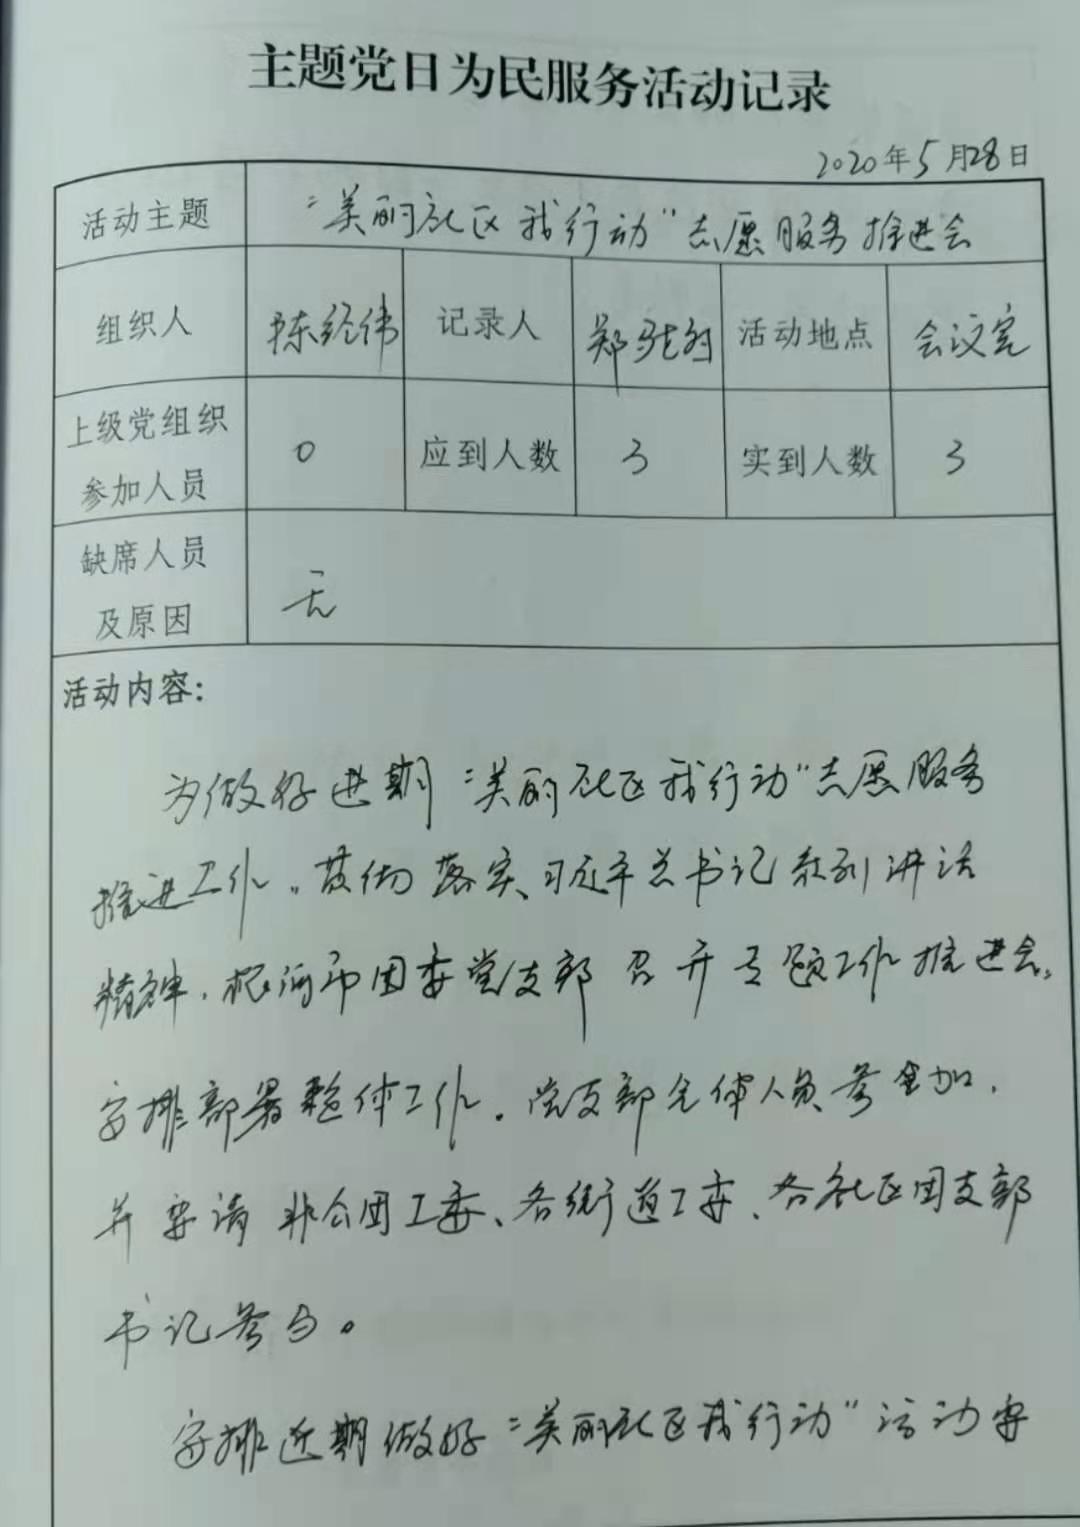 主题党日为民服务活动记录
2020年5月28日
活动主题 "美丽社区 我行动"志愿服务推进会
组织人 陈经伟 记录人 郑 活动地点 会议室
上级党组织
参加人员 0 应到人数 3 实到人数 3
缺席人员
及原因 无
活动内容:
为做好近期"美丽社区我行动"志愿服务
推进工作。贯彻落实习近平总书记系列讲话
精神,根河市团委党支部召开专题工作推进会。
安排部署整体工作。党支部全体人员参加,
并要请非公团工委、各街道工委、各社区团支部
书记参与。
安排近期做好"美丽社区我行动"活动安